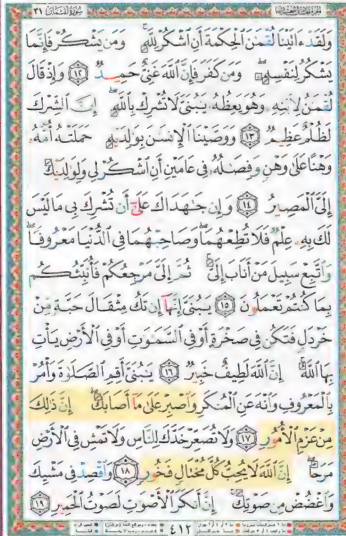 سُورَةُ لُقْمَانَ ٣١
وَلَقَدْ ءَاتَيْنَا لُقْمَٰنَ ٱلْحِكْمَةَ أَنِ ٱشْكُرْ لِلَّهِ ۚ وَمَن يَشْكُرْ فَإِنَّمَا
يَشْكُرُ لِنَفْسِهِۦ ۖ وَمَن كَفَرَ فَإِنَّ ٱللَّهَ غَنِىٌّ حَمِيدٌ ١٢ وَإِذْ قَالَ
لُقْمَٰنُ لِٱبْنِهِۦ وَهُوَ يَعِظُهُۥ يَٰبُنَىَّ لَا تُشْرِكْ بِٱللَّهِ ۖ إِنَّ ٱلشِّرْكَ
لَظُلْمٌ عَظِيمٌ ١٣ وَوَصَّيْنَا ٱلْإِنسَٰنَ بِوَٰلِدَيْهِ حَمَلَتْهُ أُمُّهُۥ
وَهْنًا عَلَىٰ وَهْنٍ وَفِصَٰلُهُۥ فِى عَامَيْنِ أَنِ ٱشْكُرْ لِى وَلِوَٰلِدَيْكَ
إِلَىَّ ٱلْمَصِيرُ ١٤ وَإِن جَٰهَدَاكَ عَلَىٰٓ أَن تُشْرِكَ بِى مَا لَيْسَ
لَكَ بِهِۦ عِلْمٌ فَلَا تُطِعْهُمَا ۖ وَصَاحِبْهُمَا فِى ٱلدُّنْيَا مَعْرُوفًا ۖ
وَٱتَّبِعْ سَبِيلَ مَنْ أَنَابَ إِلَىَّ ۚ ثُمَّ إِلَىَّ مَرْجِعُكُمْ فَأُنَبِّئُكُم
بِمَا كُنتُمْ تَعْمَلُونَ ١٥ يَٰبُنَىَّ إِنَّهَآ إِن تَكُ مِثْقَالَ حَبَّةٍ مِّنْ
خَرْدَلٍ فَتَكُن فِى صَخْرَةٍ أَوْ فِى ٱلسَّمَٰوَٰتِ أَوْ فِى ٱلْأَرْضِ يَأْتِ
بِهَا ٱللَّهُ ۚ إِنَّ ٱللَّهَ لَطِيفٌ خَبِيرٌ ١٦ يَٰبُنَىَّ أَقِمِ ٱلصَّلَوٰةَ وَأْمُرْ
بِٱلْمَعْرُوفِ وَٱنْهَ عَنِ ٱلْمُنكَرِ وَٱصْبِرْ عَلَىٰ مَآ أَصَابَكَ ۖ إِنَّ ذَٰلِكَ
مِنْ عَزْمِ ٱلْأُمُورِ ١٧ وَلَا تُصَعِّرْ خَدَّكَ لِلنَّاسِ وَلَا تَمْشِ فِى ٱلْأَرْضِ
مَرَحًا ۖ إِنَّ ٱللَّهَ لَا يُحِبُّ كُلَّ مُخْتَالٍ فَخُورٍ ١٨ وَٱقْصِدْ فِى مَشْيِكَ
وَٱغْضُضْ مِن صَوْتِكَ ۚ إِنَّ أَنكَرَ ٱلْأَصْوَٰتِ لَصَوْتُ ٱلْحَمِيرِ ١٩
٤١٢